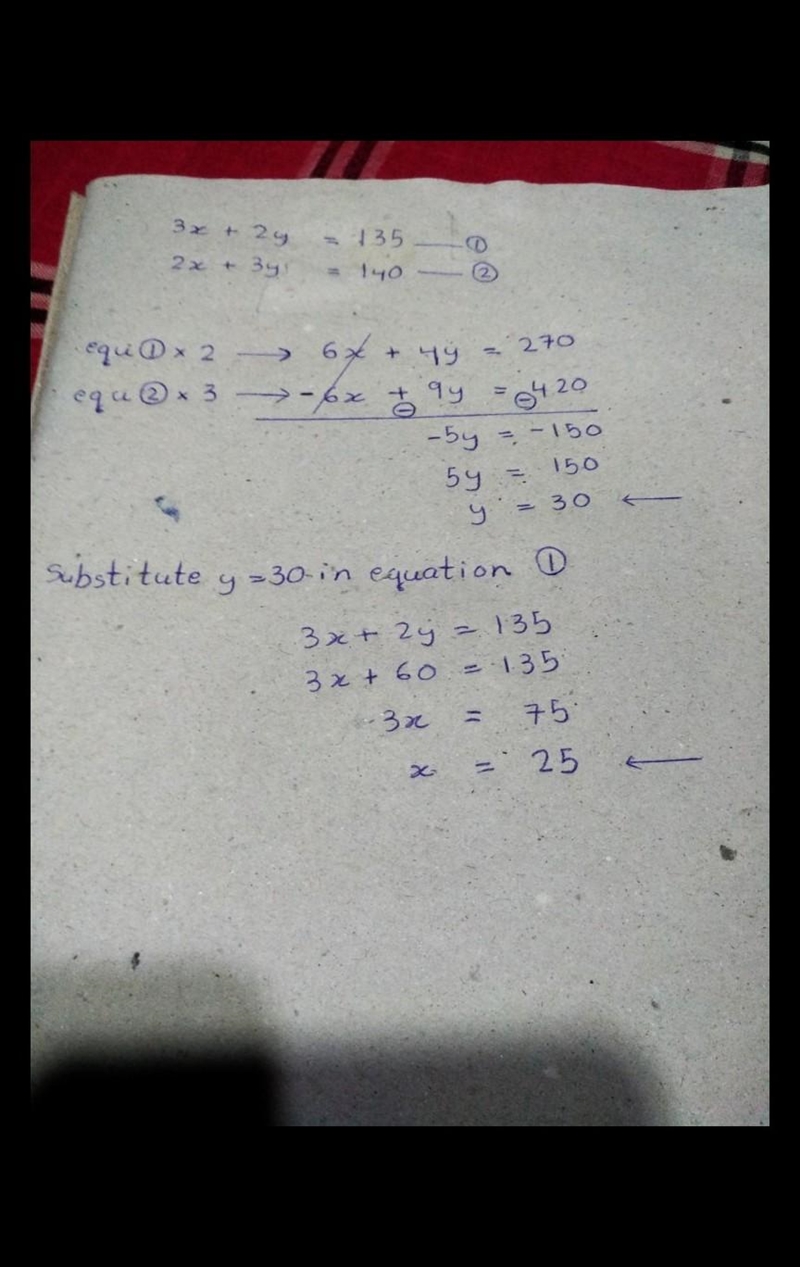 3x + 2y = 135 —— ①
2x + 3y = 140 —— ②
equ ① × 2 → 6x + 4y = 270
equ ② × 3 → - 6x + 9y = ⊖ 420
⊖
-5y = -150
5y = 150
y = 30 ←
Substitute y = 30 in equation ①
3x + 2y = 135
3x + 60 = 135
3x = 75
x = 25 ←